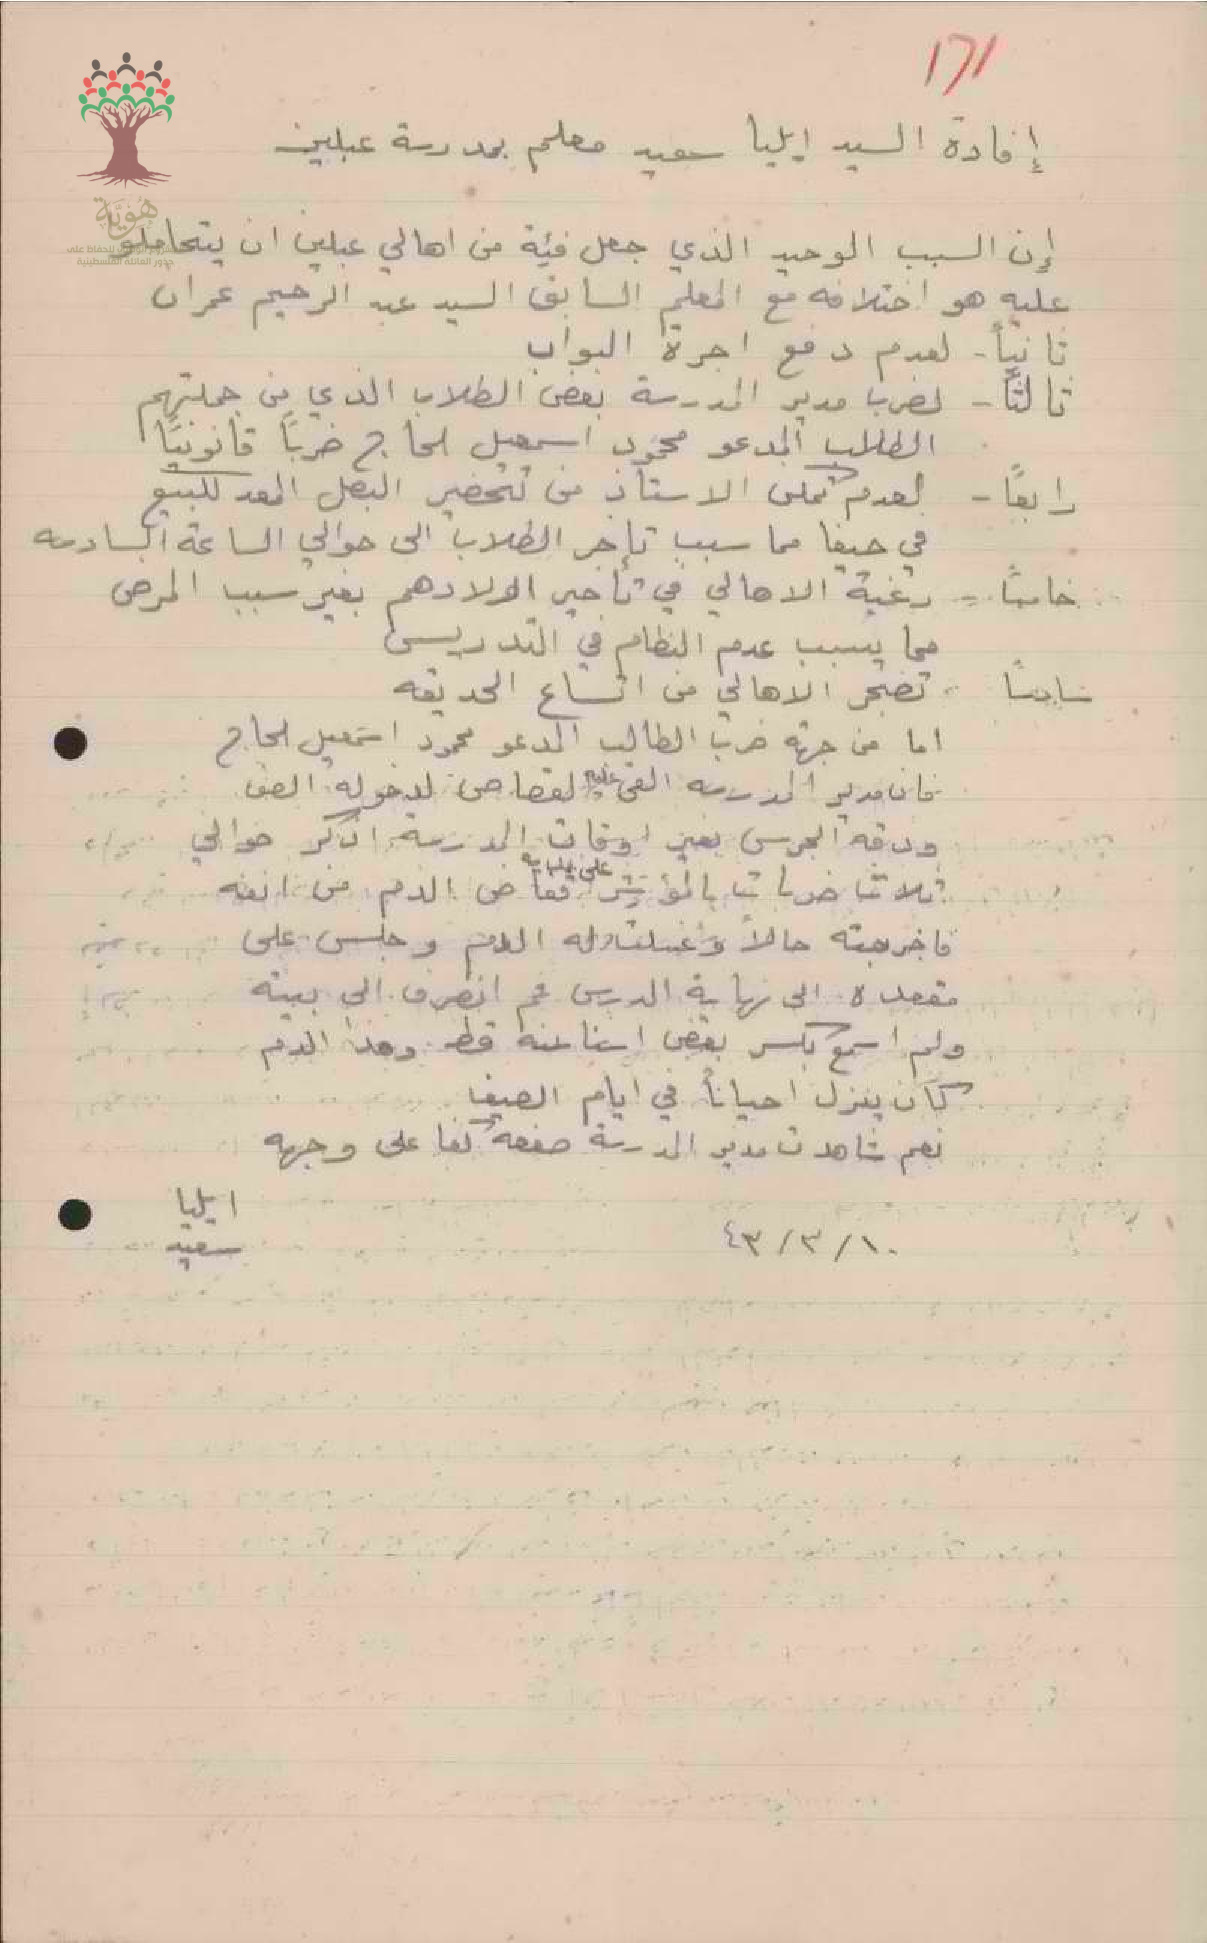 ١٦١
إفادة السيد ايليا سعيد معلم بمدرسة عبلين
هُوِيَّة
للحفاظ على
جذور العائلة الفلسطينية
إن السبب الوحيد الذي جعل فئة من اهالي عبلين ان يتحاملو
عليه هو اختلافه مع المعلم السابق السيد عبد الرحيم عمران
ثانياً - لعدم دفع اجرة البواب
ثالثاً - لضرب مدير المدرسة بعض الطلاب الذي من جملتهم
الطالب المدعو محمود اسمعيل الحاج ضرباً قانونياً
رابعاً - لعدم تمكن الاستاذ من تحضير البصل المعد للبيع
في حيفا مما سبب تأخر الطلاب الى حوالي الساعة السادسه
خامساً - رغبة الاهالي في تأخير اولادهم بغير سبب المرض
مما يسبب عدم النظام في التدريس
سادساً - تضجر الاهالي من اتساع الحديقه
اما من جهة ضرب الطالب المدعو محمود اسمعيل الحاج
فان مدير المدرسه القى عليه القصاص لدخوله الصف
ودقه الجرس بغير اوقات المدرسة اذكر حوالي
ثلاث ضربات بالمؤشر على يديه ففاض الدم من انفه
فاخرجته حالاً وغسلت له الدم وجلس على
مقعده الى نهاية الدرس ثم انصرف الى بيته
ولم اسمع بكسر بعض اسنانه قط وهذا الدم
كان ينزل احياناً في ايام الصيف
نعم شاهدت مدير المدرسة صفعه كفا على وجهه
ايليا
سعيد
٤٣/٣/١٠